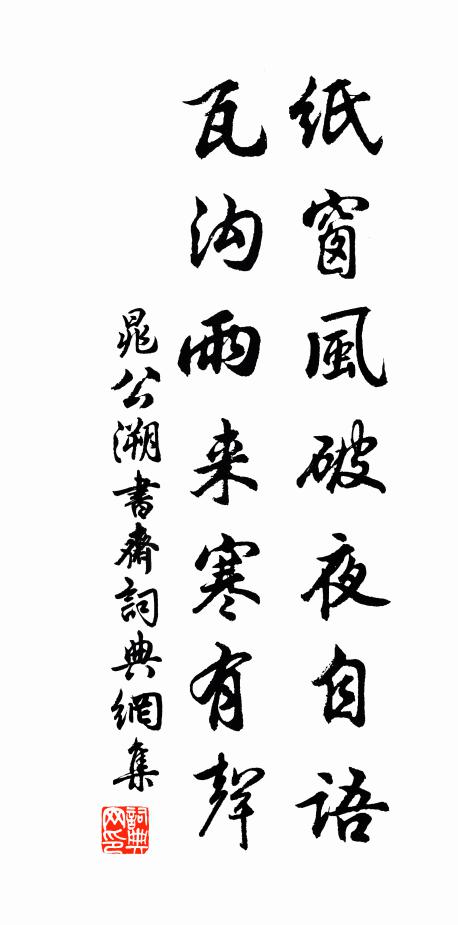 紙窗風破夜自語
瓦沟雨来寒有聲
晁公溯書齋詞典網集
詞典网印